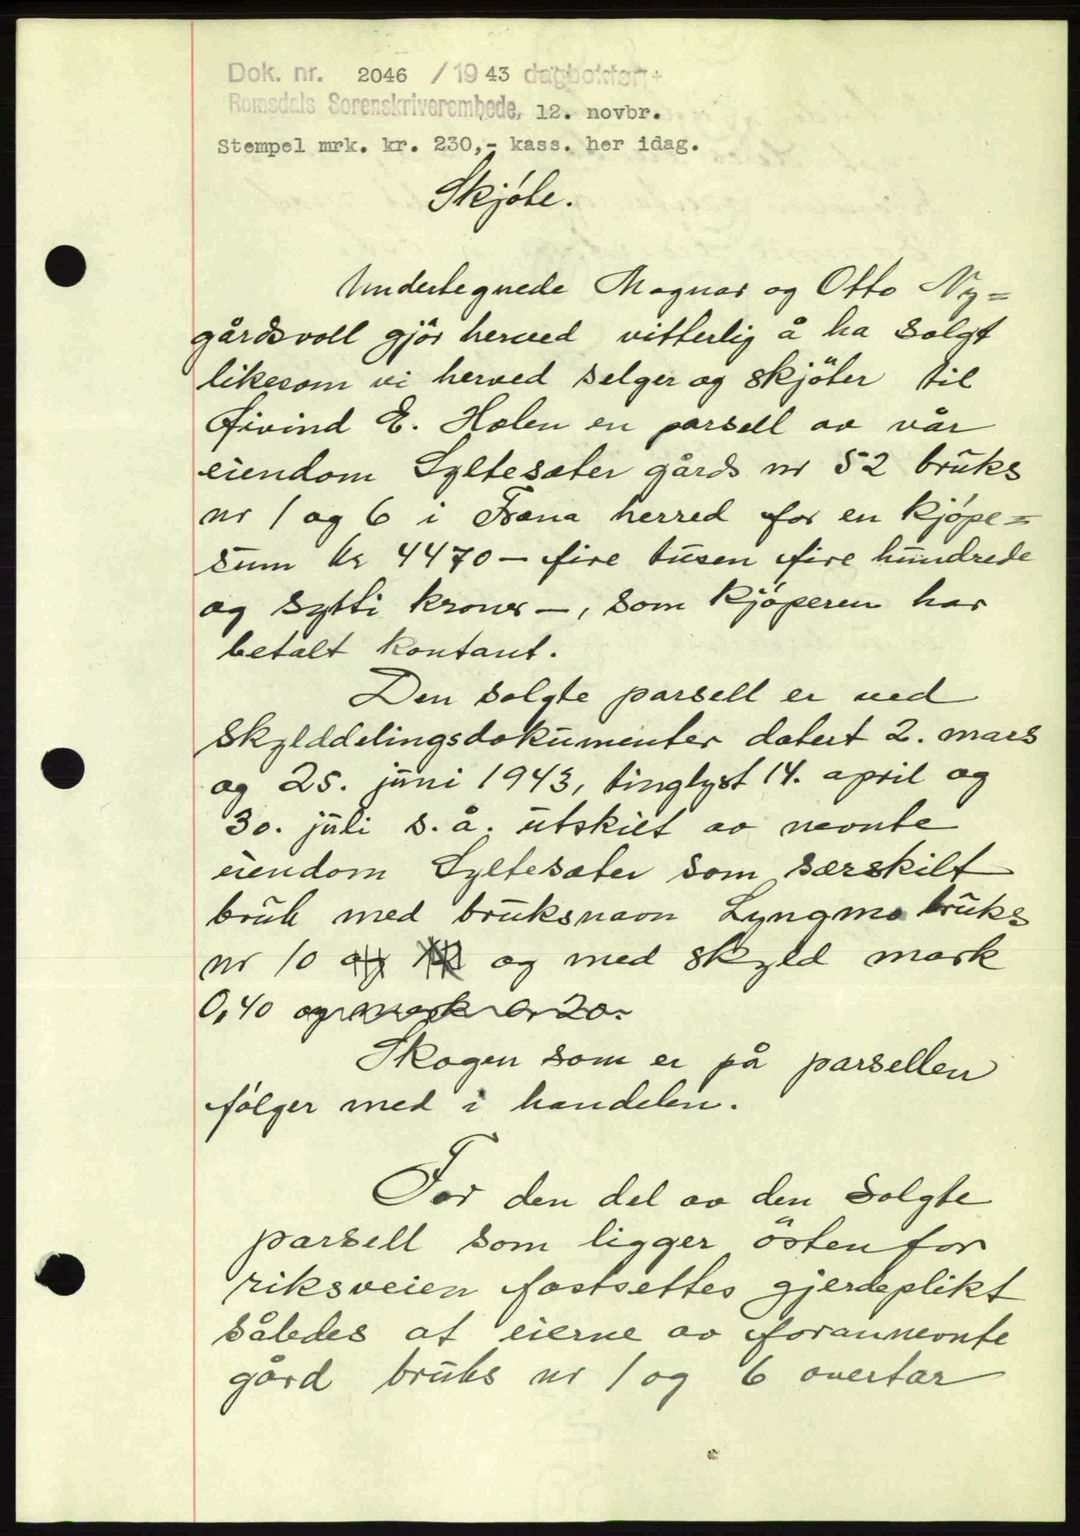 Dok. nr. 2046 /1943 dagboken
Romsdals Sorenskriverembede, 12. novbr.
Stempel mrk. kr. 230,- kass. her idag.
Skjöte.
Undertegnede Magnar og Otto Ny=
gårdsvoll gjör herved vitterlig å ha solgt
likesom vi herved selger og skjöter til
Øivind E. Holen en parsell av vår
eiendom Syltesæter gårds nr 52 bruks
nr 1 og 6 i Fræna herred for en kjöpe=
sum kr 4470 - fire tusen fire hundrede
og sytti kroner -, som kjöperen har
betalt kontant.
Den solgte parsell er ved
skylddelingsdokumenter datert 2. mars
og 25. juni 1943, tinglyst 14. april og
30. juli s. å. utskilt av nevnte
eiendom Syltesæter som særskilt
bruk med bruksnavn Lyngmo bruks
nr 10 og og med skyld mark
0,40 og mark 0,20.
Skogen som er på parsellen
følger med i handelen.
For den del av den solgte
parsell som ligger östenfor
riksveien fastsettes gjerdeplikt
således at eierne av forannevnte
gård bruks nr 1 og 6 overtar